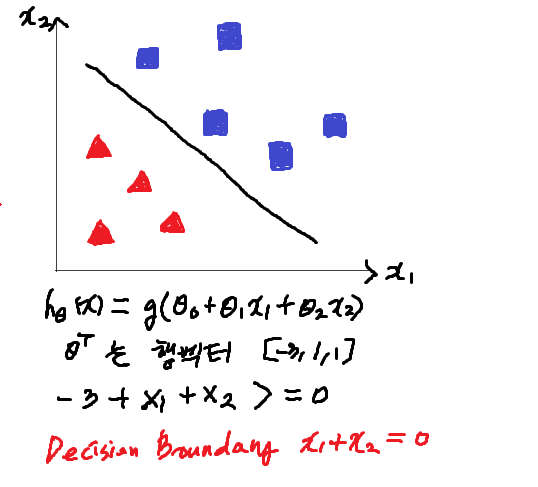 x₂
x₁
hθ(x) = g(θ₀+θ₁x₁+θ₂x₂)
θᵀ 는 행벡터 [-3,1,1]
-3+x₁+x₂ >=0
Decision Boundary x₁+x₂=0